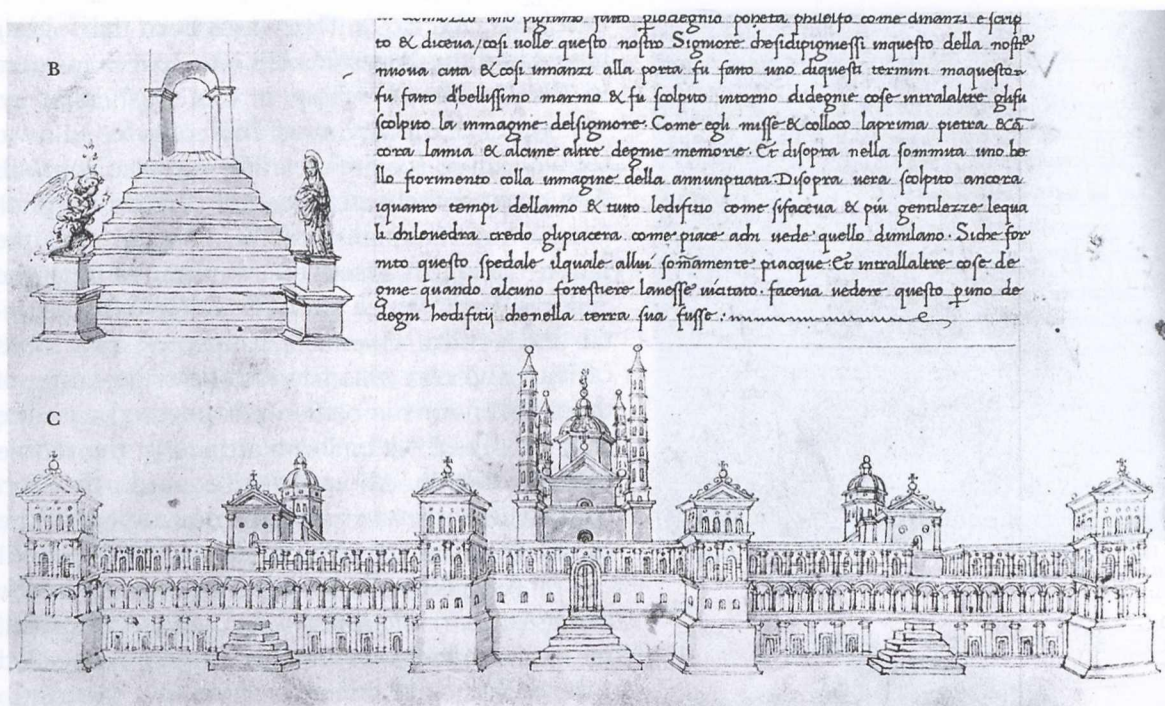 B
uno pigliamo fatto plodegnio poheta philelfo come dinanzi e scrip
to & diceva/cosi volle questo nostro Signore chesidipignessi inquesto della nostra
nuova citta & cosi innanzi alla porta fu fatto uno diquesti termini maquesto
fu fatto dibellissimo marmo & fu scolpito intorno didegnie cose intralaltre glifu
scolpito la immagine delsignore Come egli misse & colloco laprima pietra &
cora lamia & alcune altre degnie memorie Et disopra nella sommita uno be
llo fiorimento colla inmagine della annuntiata Disopra vera scolpito ancora
iquatro tempi dellanno & tutto ledifitio come sifaceva & più gentilezze lequa
li chilevedra credo glipiacera come piace achi vede quello dimilano. Siche for
nito questo spedale ilquale allui sommamente piacque Et intrallaltre cose de
gnie quando alcuno forestiere lavesse vicitato faceva vedere questo p uno de
degni hedifitij chenella terra sua fusse:
C